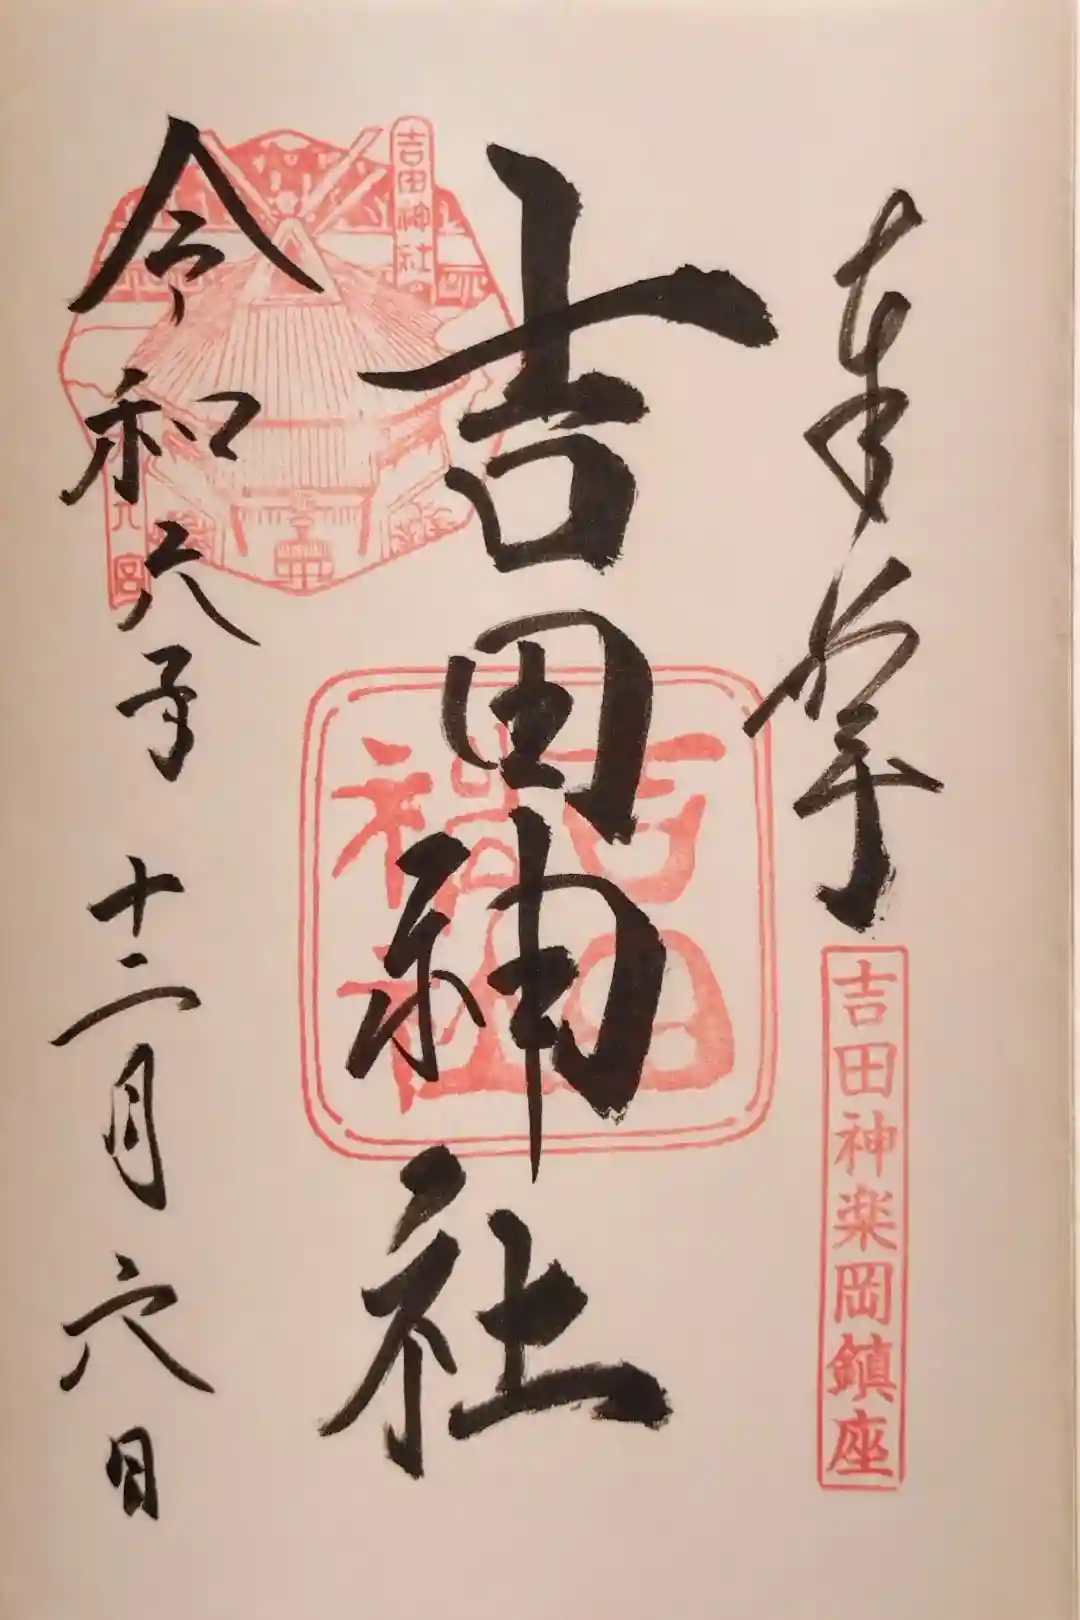 奉拝
吉田神楽岡鎮座
吉田神社
吉田神社
令和六年十二月六日
吉田神社